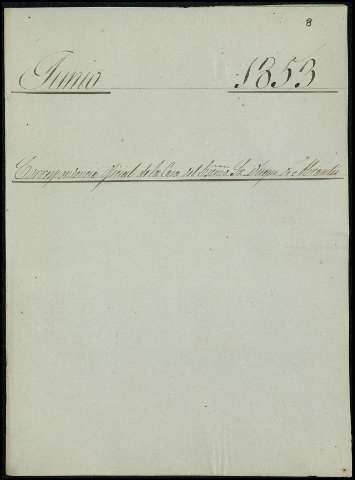 8
Junio 1853
Correspondencia oficial de la Casa del Excmo. Sr. Duque de